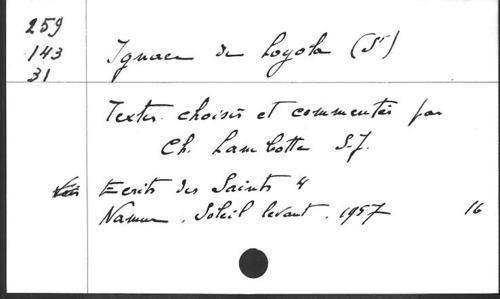 259
143
31
Ignace de Loyola (St)
Textes choisis et commentés par
Ch. Lambotte S.J.
Ecrits des Saints 4
Namur, Soleil levant, 1957 16